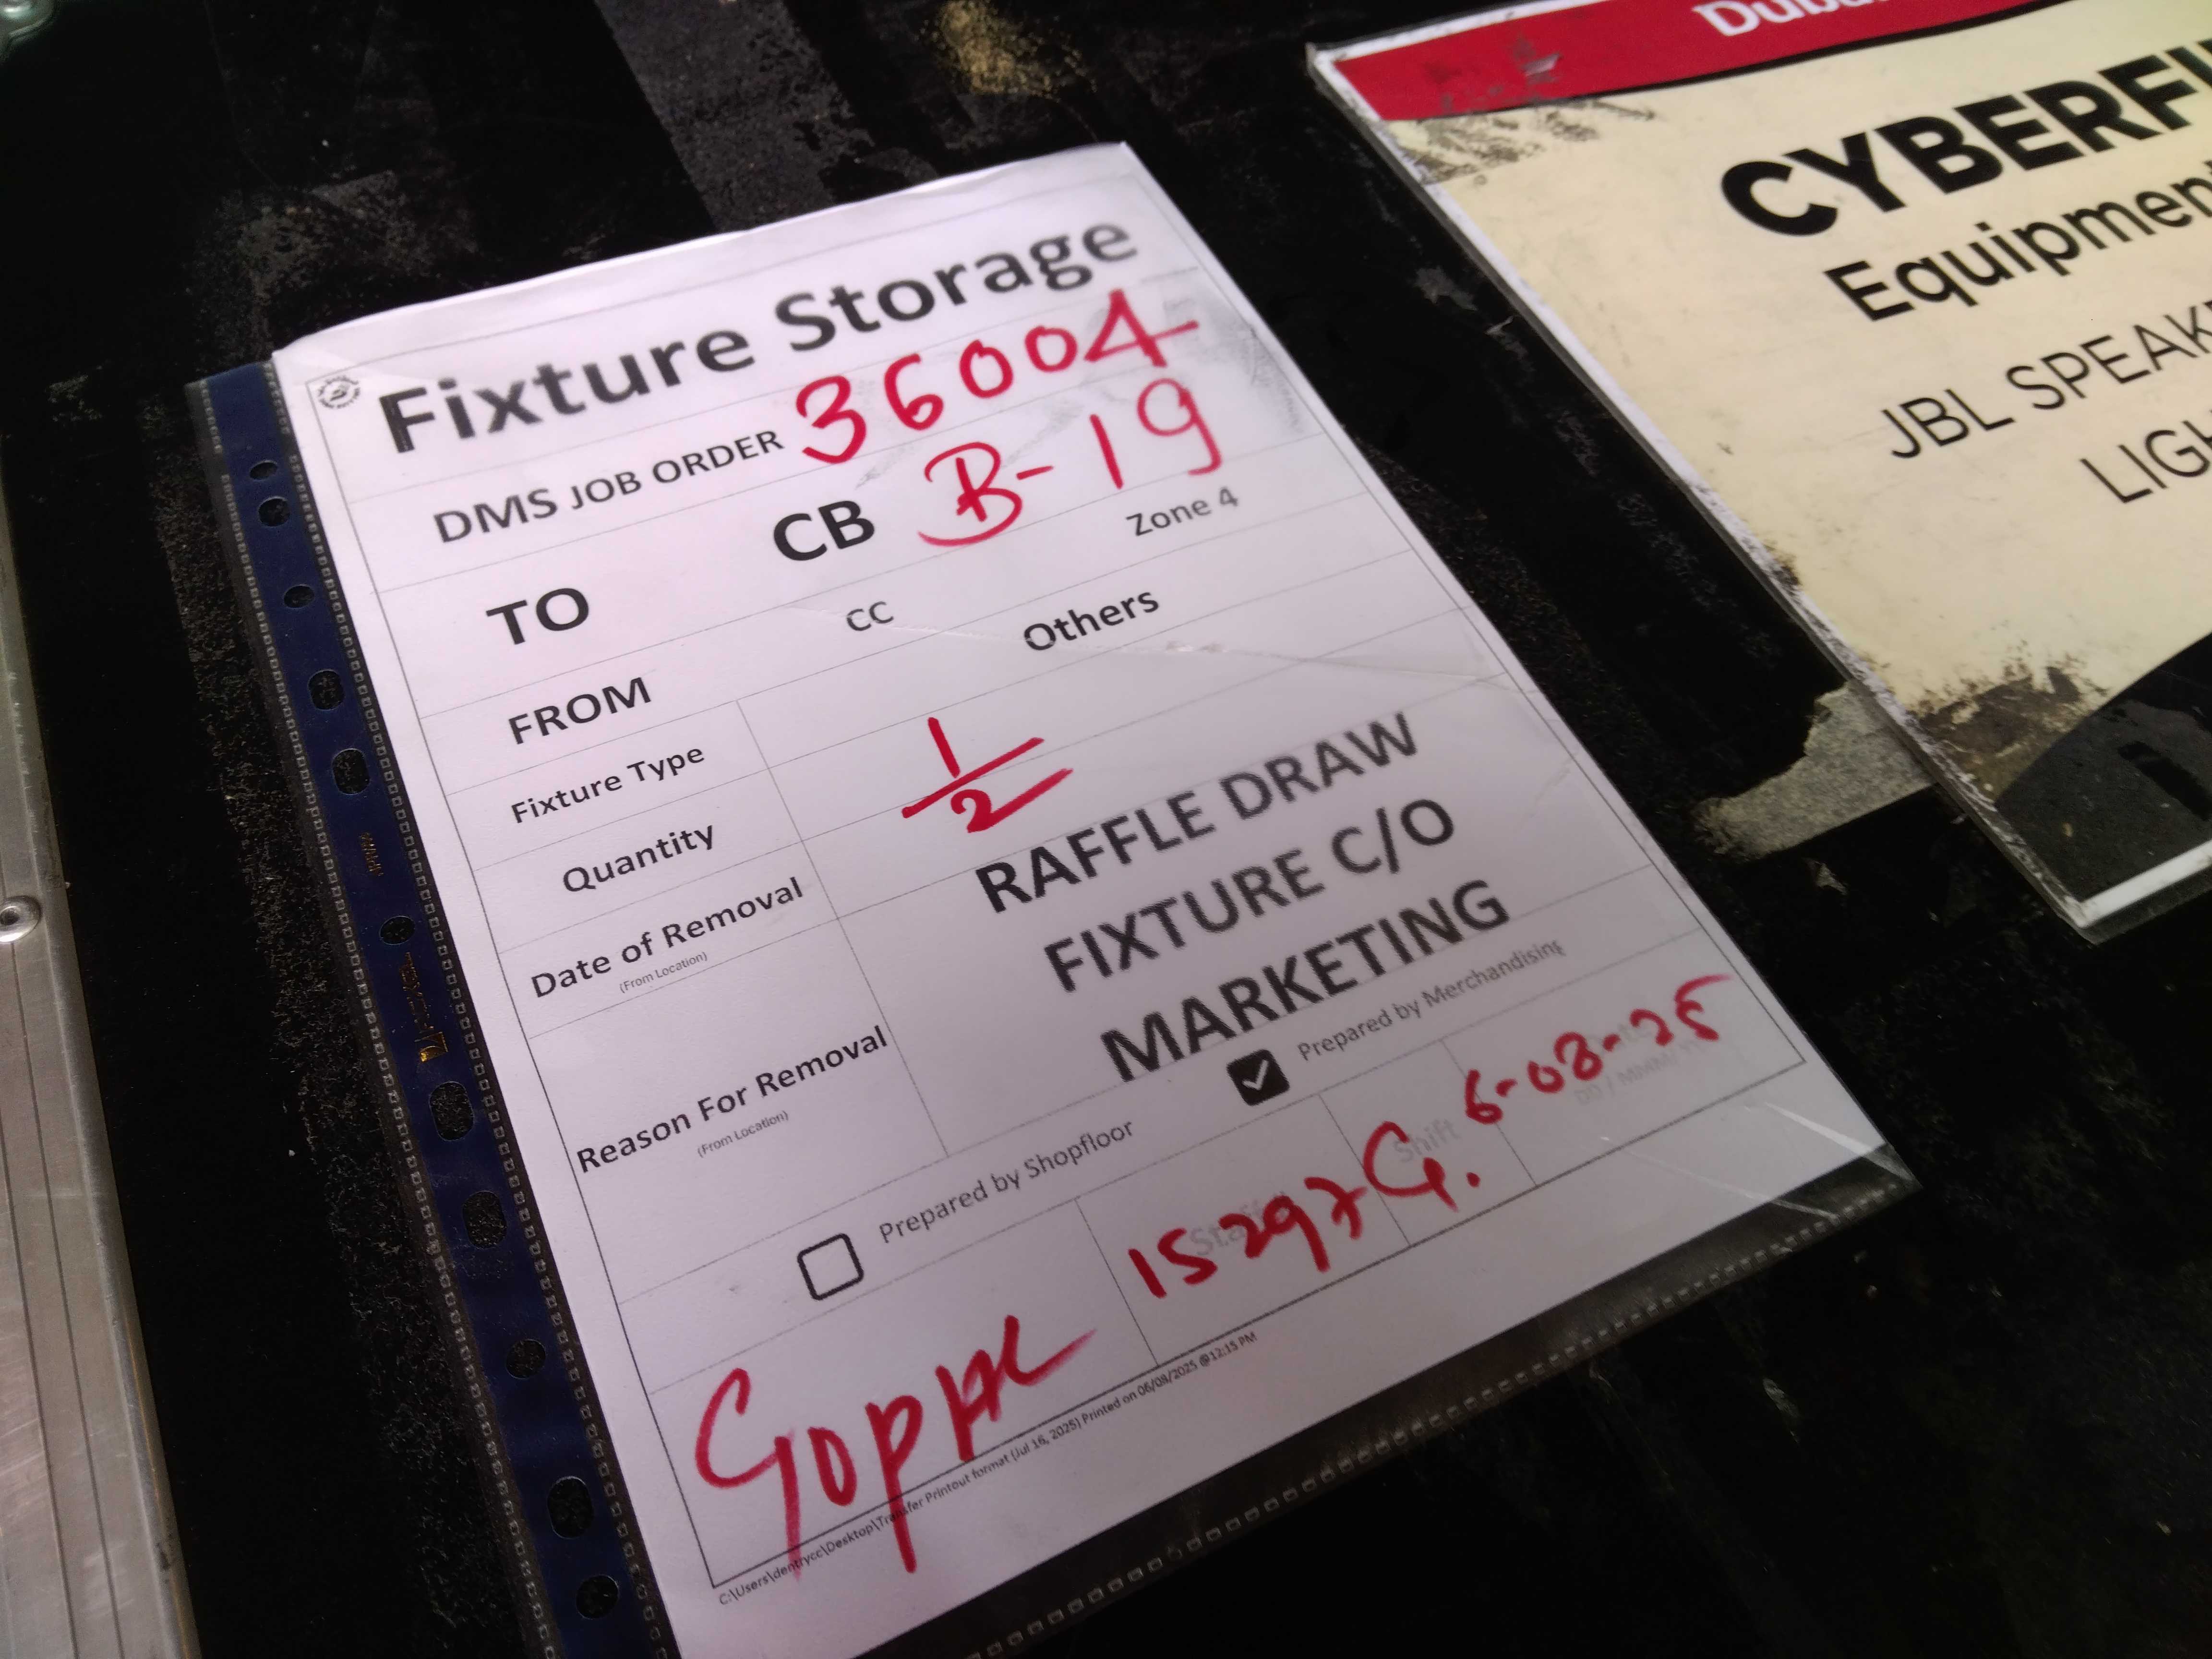 Fixture Storage
DMS JOB ORDER 36004
TO CB B-19
CC Zone 4
FROM Others
Fixture Type
Quantity 1/2
Date of Removal
(From Location)
RAFFLE DRAW
FIXTURE C/O
MARKETING
Reason For Removal
(From Location)
Prepared by Shopfloor Prepared by Merchandising
15297 G. Shift 6-08-25
C:\Users\dentrycc\Desktop\Transfer Printout format (Jul 16, 2025) Printed on 06/08/2025 @12:15 PM
CYBERFI
Equipment
JBL SPEAK
LIGH